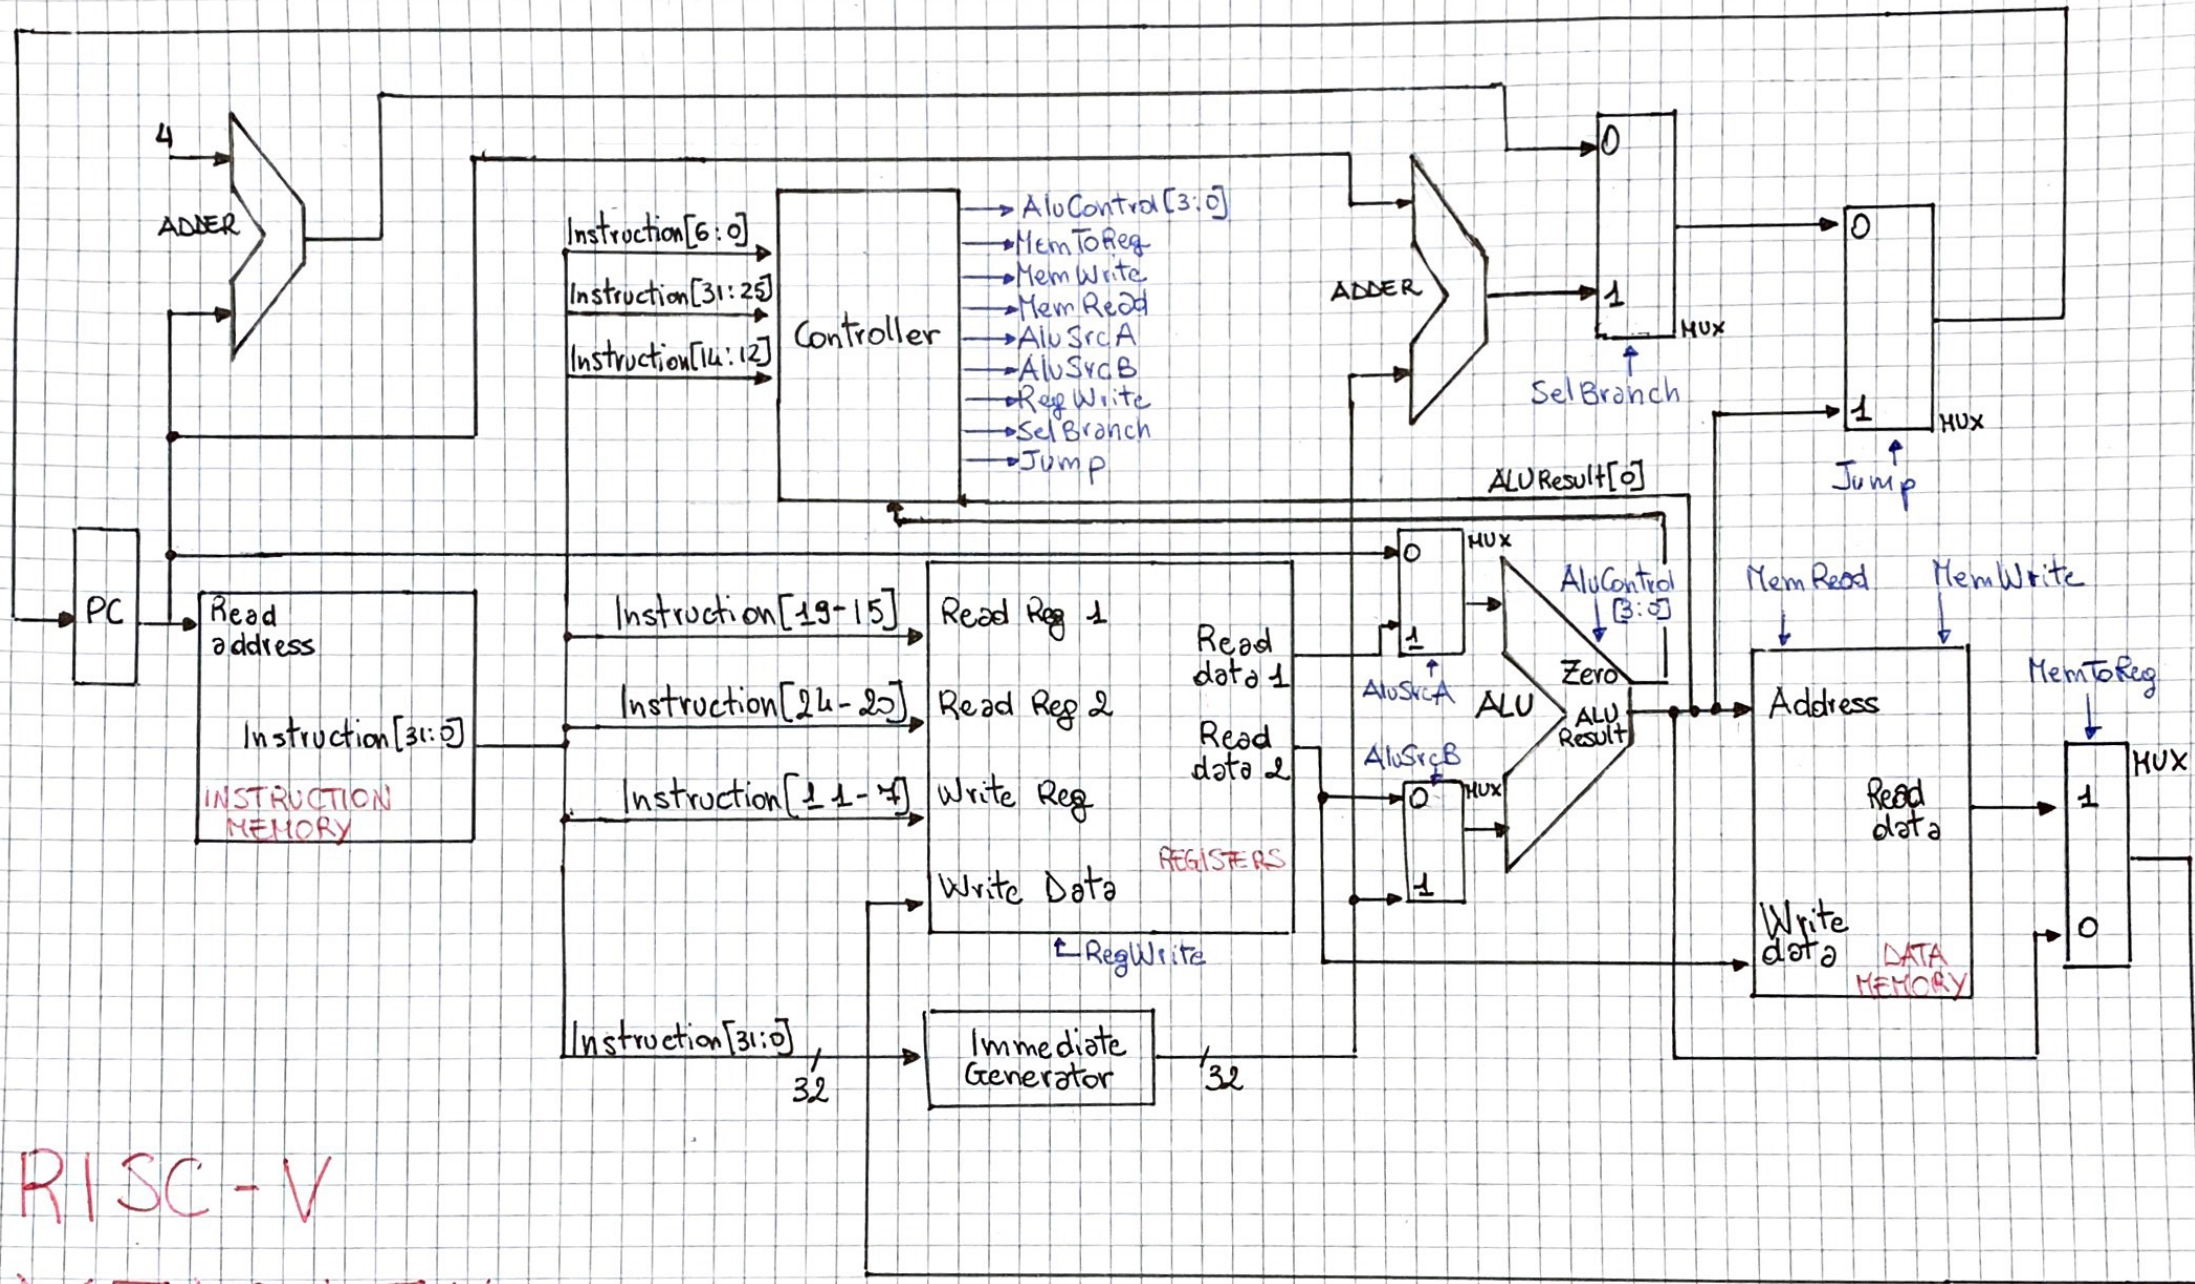 4
ADDER
Instruction[6:0]
Instruction[31:25]
Instruction[14:12]
Controller
AluControl[3:0]
MemToReg
MemWrite
MemRead
AluSrcA
AluSrcB
RegWrite
SelBranch
Jump
ADDER
0
1
MUX
SelBranch
0
1
MUX
Jump
ALUResult[0]
PC
Read
address
Instruction[31:0]
INSTRUCTION
MEMORY
Instruction[19-15]
Instruction[24-20]
Instruction[11-7]
Read Reg 1
Read Reg 2
Write Reg
Write Data
Read
data 1
Read
data 2
REGISTERS
RegWrite
0
1
MUX
AluSrcA
AluSrcB
0
1
MUX
ALU
AluControl
[3:0]
Zero
ALU
Result
MemRead
MemWrite
Address
Read
data
Write
data
DATA
MEMORY
MemToReg
MUX
1
0
Instruction[31:0]
32
Immediate
Generator
32
RISC-V